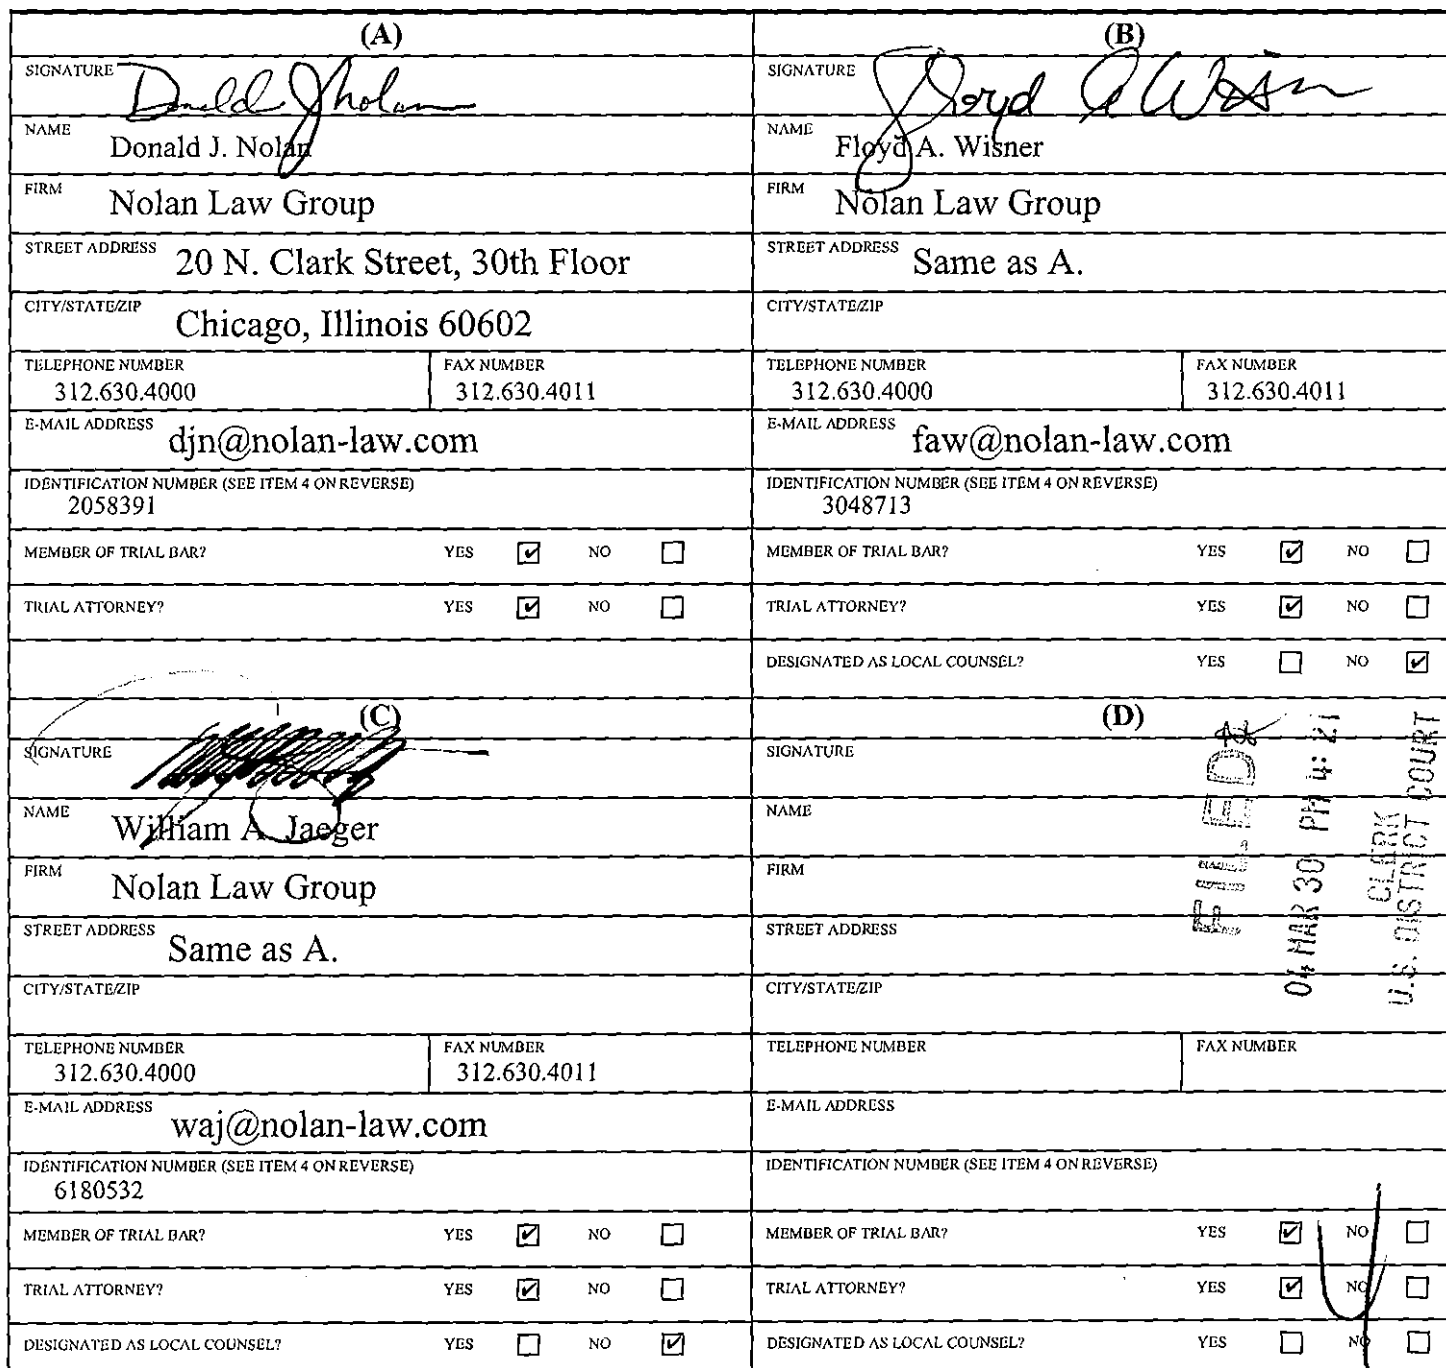 (A)
SIGNATURE Donald J Nolan
NAME Donald J. Nolan
FIRM Nolan Law Group
STREET ADDRESS 20 N. Clark Street, 30th Floor
CITY/STATE/ZIP Chicago, Illinois 60602
TELEPHONE NUMBER 312.630.4000
FAX NUMBER 312.630.4011
E-MAIL ADDRESS djn@nolan-law.com
IDENTIFICATION NUMBER (SEE ITEM 4 ON REVERSE)
2058391
MEMBER OF TRIAL BAR? YES NO
TRIAL ATTORNEY? YES NO
(B)
SIGNATURE Floyd A Wisner
NAME Floyd A. Wisner
FIRM Nolan Law Group
STREET ADDRESS Same as A.
CITY/STATE/ZIP
TELEPHONE NUMBER 312.630.4000
FAX NUMBER 312.630.4011
E-MAIL ADDRESS faw@nolan-law.com
IDENTIFICATION NUMBER (SEE ITEM 4 ON REVERSE)
3048713
MEMBER OF TRIAL BAR? YES NO
TRIAL ATTORNEY? YES NO
DESIGNATED AS LOCAL COUNSEL? YES NO
(C)
SIGNATURE
NAME William A. Jaeger
FIRM Nolan Law Group
STREET ADDRESS Same as A.
CITY/STATE/ZIP
TELEPHONE NUMBER 312.630.4000
FAX NUMBER 312.630.4011
E-MAIL ADDRESS waj@nolan-law.com
IDENTIFICATION NUMBER (SEE ITEM 4 ON REVERSE)
6180532
MEMBER OF TRIAL BAR? YES NO
TRIAL ATTORNEY? YES NO
DESIGNATED AS LOCAL COUNSEL? YES NO
(D)
SIGNATURE
NAME
FIRM
STREET ADDRESS
CITY/STATE/ZIP
TELEPHONE NUMBER
FAX NUMBER
E-MAIL ADDRESS
IDENTIFICATION NUMBER (SEE ITEM 4 ON REVERSE)
MEMBER OF TRIAL BAR? YES NO
TRIAL ATTORNEY? YES NO
DESIGNATED AS LOCAL COUNSEL? YES NO
FILED
04 MAR 30 PM 4: 21
CLERK
U.S. DISTRICT COURT